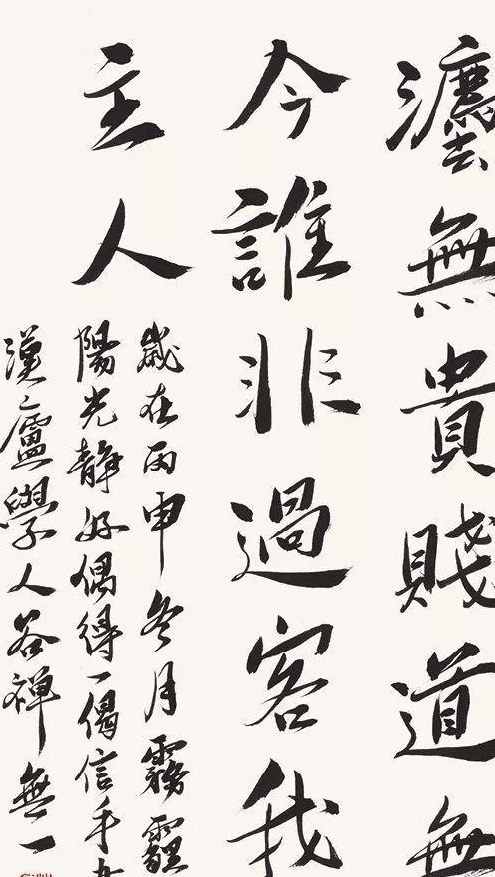 灋無貴賤道無
今誰非過客我
主人
歲在丙申冬月霧霾
陽光靜好偶得一偈信手
漢廬學人谷禪無一